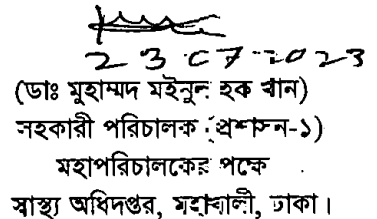 23 07 2023
(ডাঃ মুহাম্মদ মইনুল হক খান)
সহকারী পরিচালক (প্রশাসন-১)
মহাপরিচালকের পক্ষে
স্বাস্থ্য অধিদপ্তর, মহাখালী, ঢাকা।